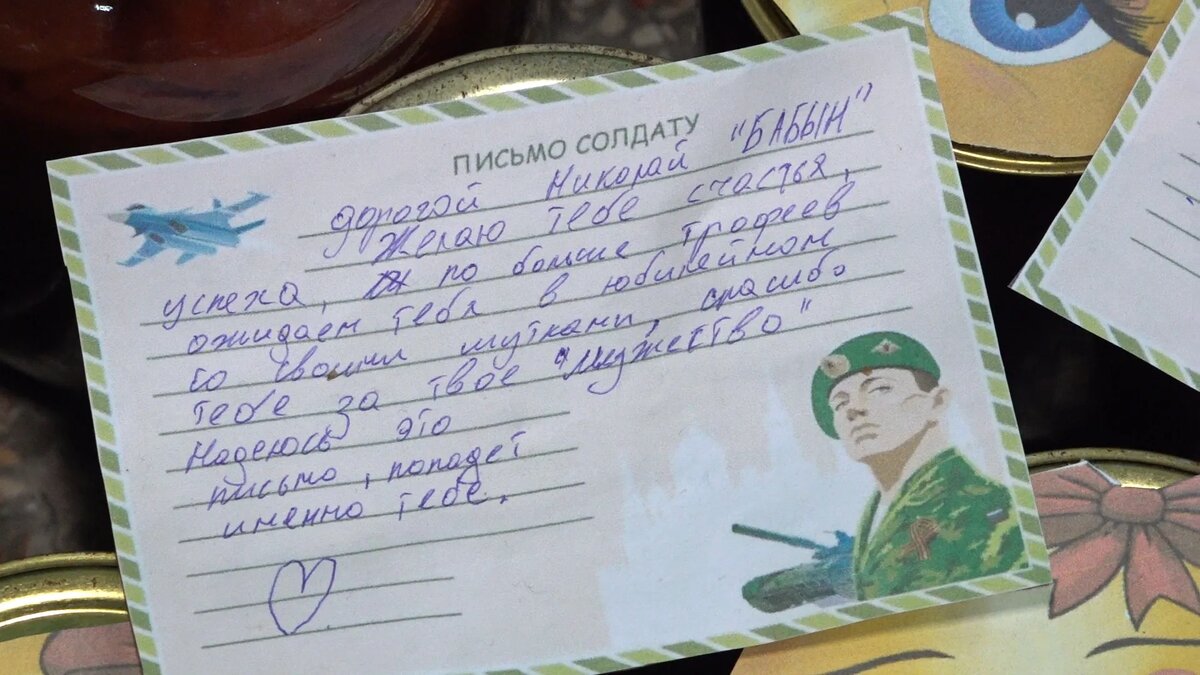 ПИСЬМО СОЛДАТУ
дорогой Николай "БАБЫН"
Желаю тебе счастья,
успеха, по больше трофеев
ожидаем тебя в юбилейном
со своими шутками, спасибо
тебе за твоё "мужество"
Надеюсь это
письмо, попадет
именно тебе.